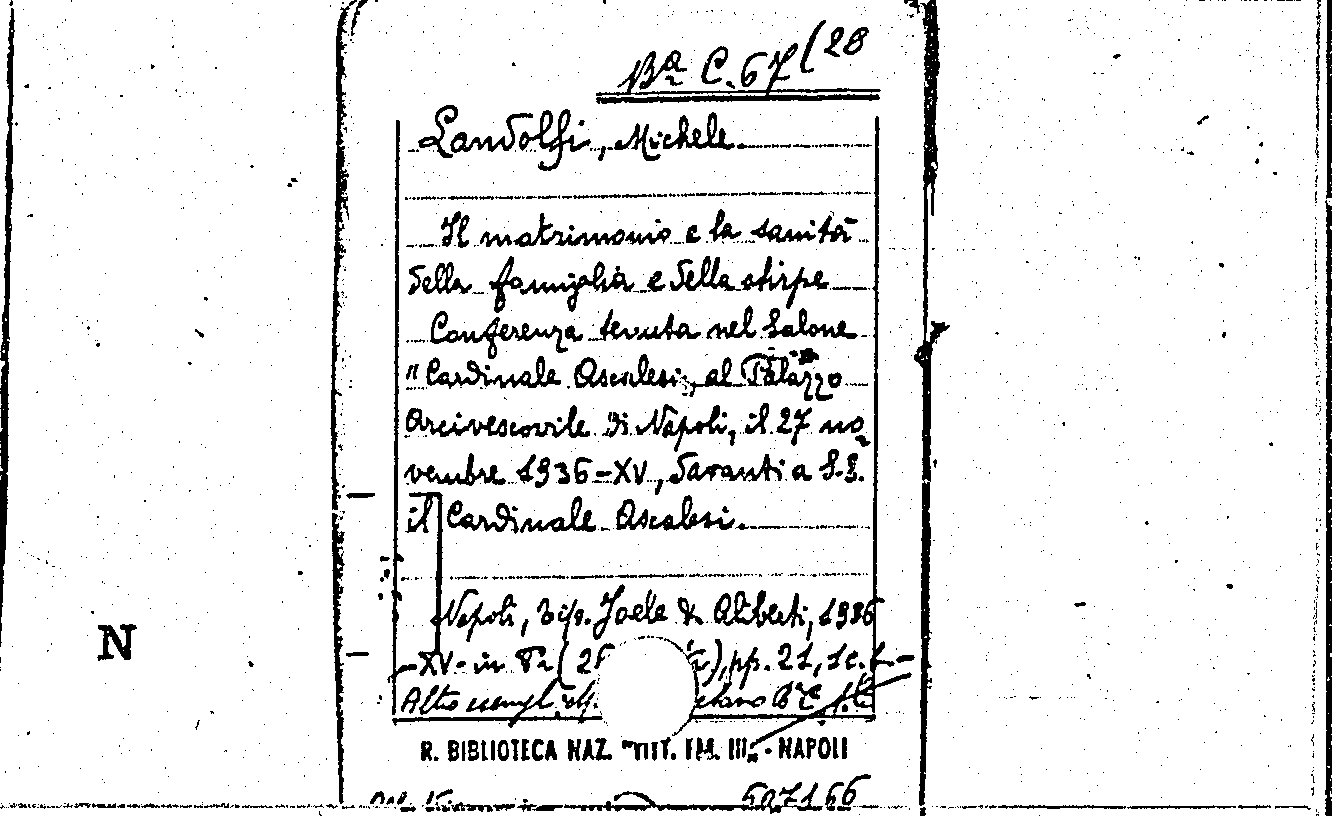 Bª C. 67 (28
Landolfi, Michele.
Il matrimonio e la sanità
della famiglia e della stirpe
Conferenza tenuta nel Salone
"Cardinale Ascalesi", al Palazzo
Arcivescovile di Napoli, il 27 no-
vembre 1936-XV, davanti a S.E.
il Cardinale Ascalesi.
Napoli, Tip. Joele & Aliberti, 1936
-XV- in 8º (2 ), pp. 21, 1 c.
Altro esempl. Bª C
N
R. BIBLIOTECA NAZ. "VITT. EM. III" - NAPOLI
507166